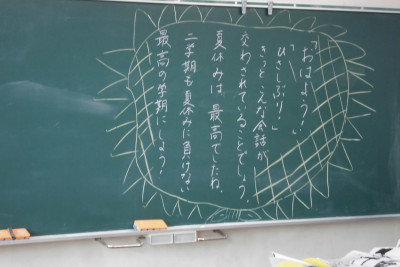 「おはよう！」
「ひさしぶり！」
きっと こんな会話が
交わされていることでしょう。
夏休みは、最高でしたね。
二学期も夏休みに負けない
最高の学期にしよう！